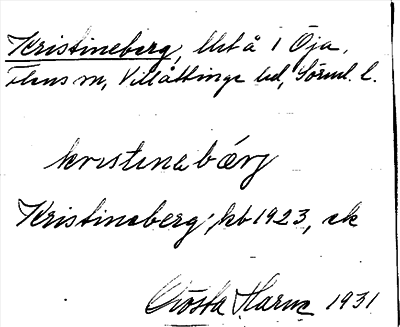 Kristineberg, lht å 1 Öja,
Flens sn, Villåttinge hd, Sörml. l.
kristinəbærj
Kristineberg, kb 1923, ek
Gösta Harne 1931